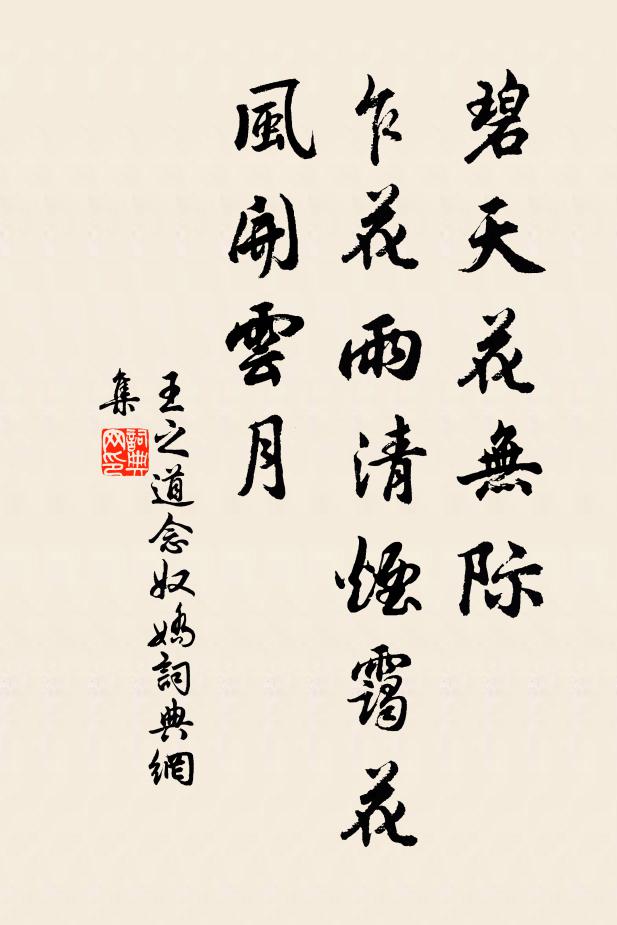 碧天花無际
乍花雨清煙靄花
風開雲月
王之道念奴嬌詞典網
集
詞典
网印